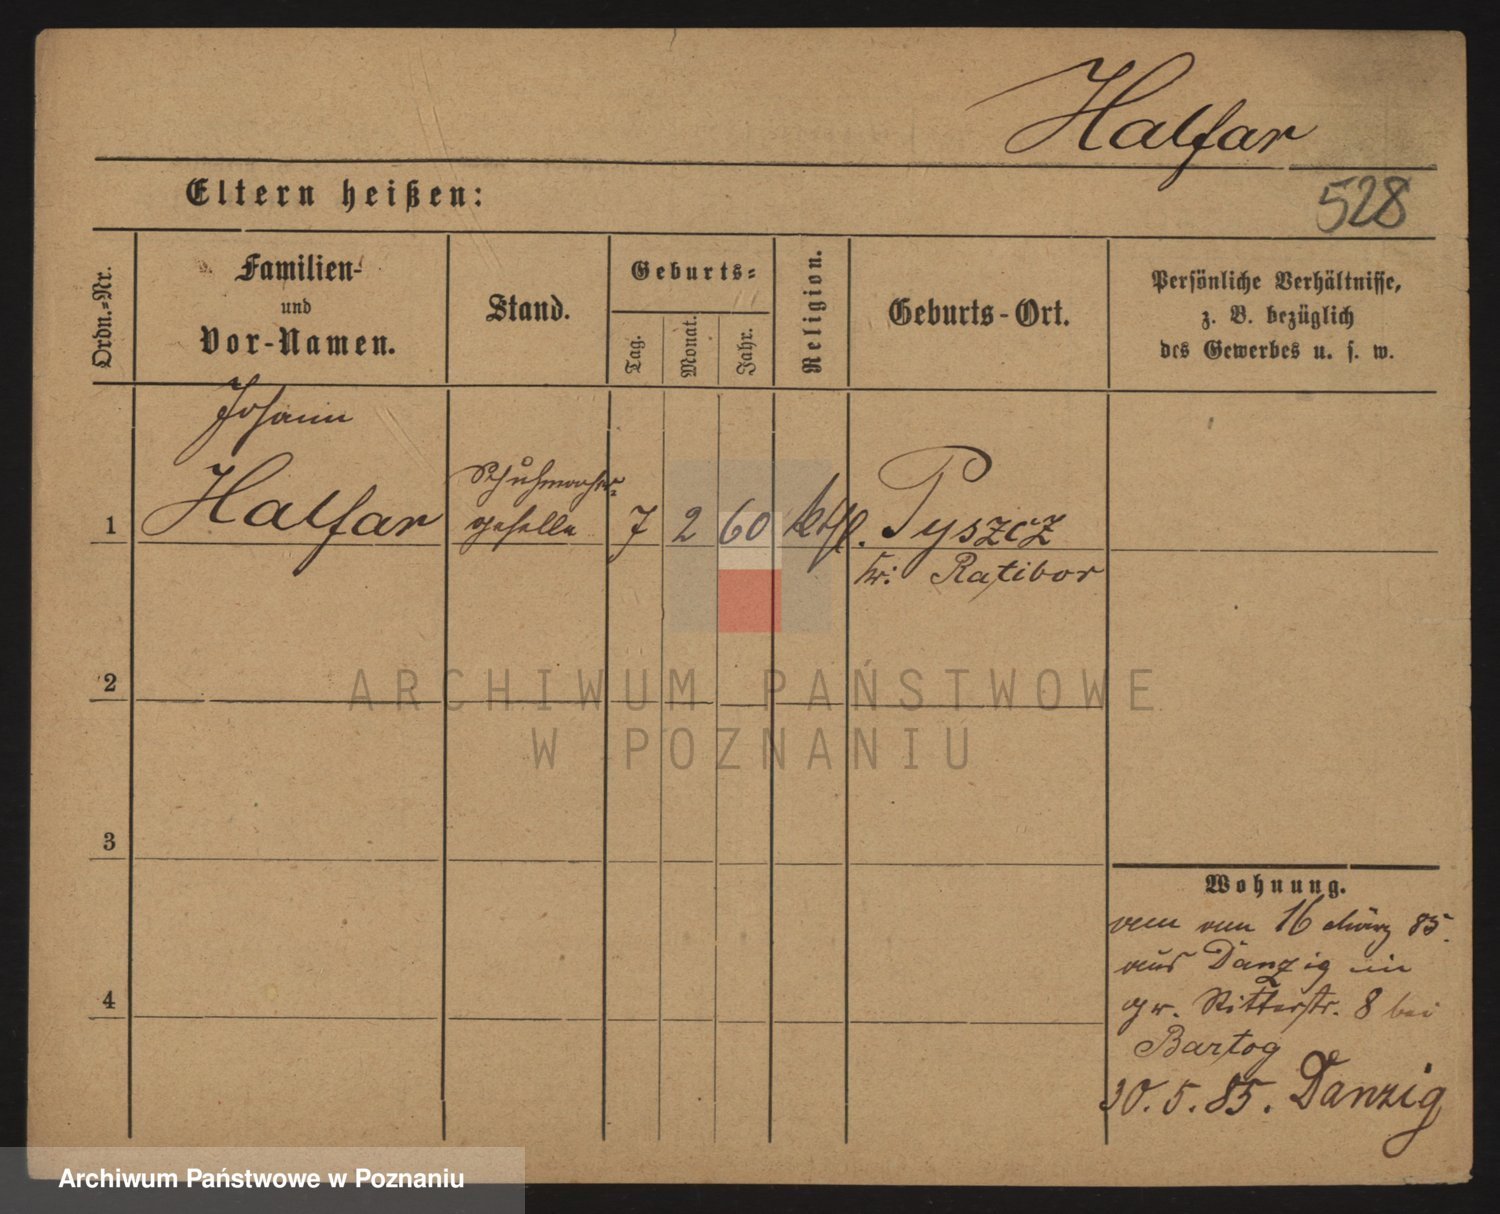 Halfar
Eltern heißen:
528
Ordn.-Nr.
Familien-
und
Vor-Namen.
Stand.
Geburts-
Tag.
Monat.
Jahr.
Religion.
Geburts-Ort.
Persönliche Verhältnisse,
z. B. bezüglich
des Gewerbes u. s. w.
Johann
1 Halfar
Schuhmacher-
geselle
7 2 60 kthl. Pyszcz
Kr. Ratibor
2
3
4
ARCHIWUM PAŃSTWOWE
W POZNANIU
Wohnung.
16 März 85.
aus Danzig in
gr. Ritterstr. 8 bei
Bartog
30. 5. 85. Danzig
Archiwum Państwowe w Poznaniu